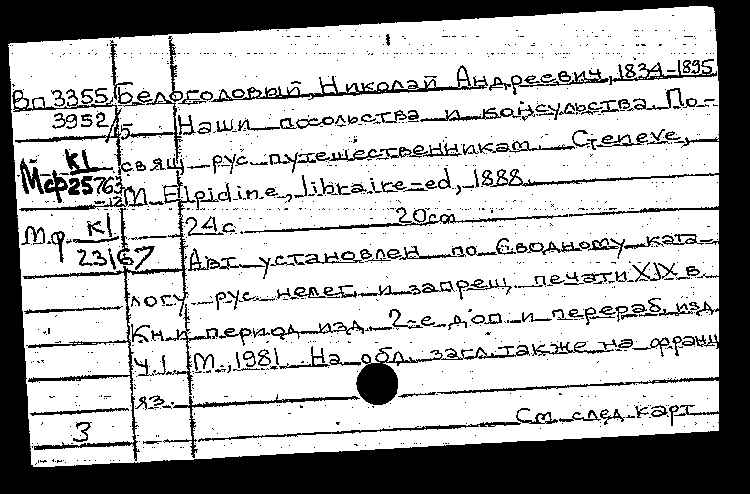 Вп 3355 Белоголовый, Николай Андреевич, 1834-1895
3952/15 Наши посольства и консульства. По-
Мф К1 25763-12 свящ. рус. путешественникам. Geneve,
M. Elpidine, libraire-ed, 1888.
Мф К1 23167 24 с. 20 см
Авт. установлен по Сводному ката-
логу рус. нелег. и запрещ. печати XIX в.
Кн. и период. изд. 2-е доп. и перераб. изд.
Ч. 1 М., 1981. На обл. загл. также на франц.
яз.
3 См. след. карт.